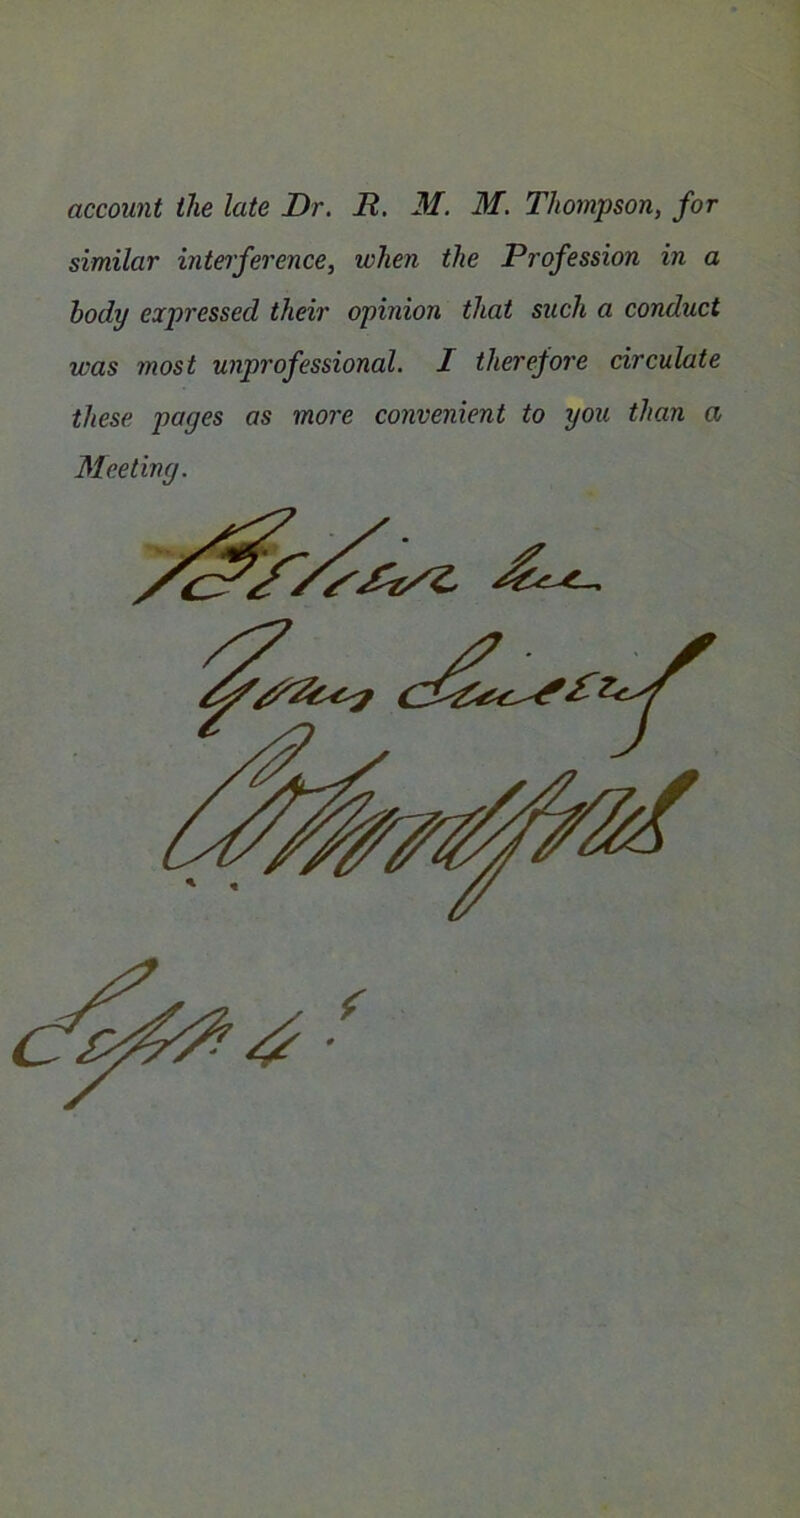 account the late Dr. R. M. M. Thompson, for
similar interference, when the Profession in a
body expressed their opinion that such a conduct
was most unprofessional. I therefore circulate
these pages as more convenient to you than a
Meeting.
Yours